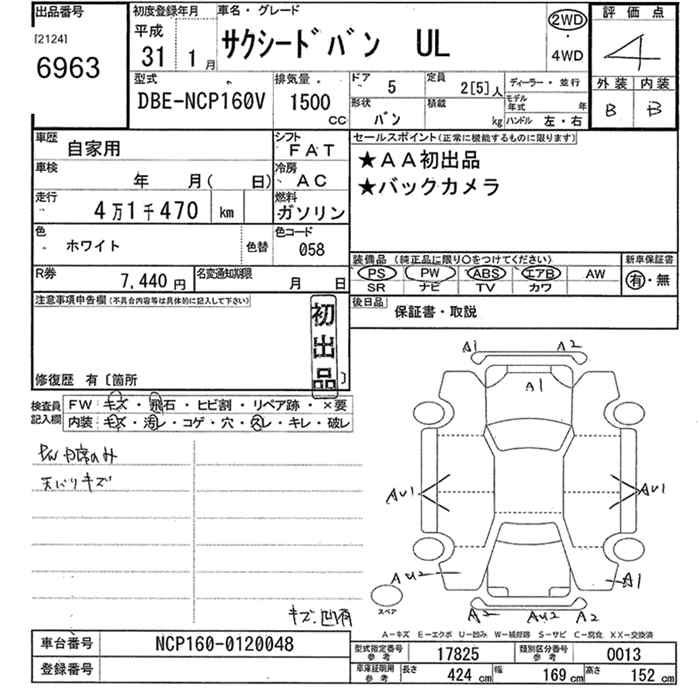 出品番号
[2124]
6963
初度登録年月
平成
31 1月
車名・グレード
サクシードバン UL
2WD
・
4WD
評価点
4
外装 内装
B B
型式
DBE-NCP160V
排気量
1500 CC
ドア 5
定員 2[5]人
ディーラー・並行
形状 バン
積載 kg
モデル年式 年
ハンドル 左・右
車歴 自家用
シフト FAT
セールスポイント(正常に機能するものに限ります)
★AA初出品
★バックカメラ
車検 年 月( 日)
冷房 AC
走行 4万1千470 km
燃料 ガソリン
色 ホワイト
色替
色コード 058
装備品 (純正品に限り○をつけてください)
PS PW ABS エアB AW
SR ナビ TV カワ
新車保証書
有・無
R券 7,440円
名変通知期限 月 日
後日品 保証書・取説
注意事項申告欄(不具合内容等は具体的に記入して下さい)
初出品
修復歴 有〔箇所 〕
検査員記入欄
FW キズ・飛石・ヒビ割・リペア跡・×要
内装 キズ・汚レ・コゲ・穴・スレ・キレ・破レ
天バリキズ
キズ、凹有
A1 A2
A1
AU1 AU1
AU2 A1
A2 AU2 A2
スペア
A－キズ E－エクボ U－凹み W－補修跡 S－サビ C－腐食 XX－交換済
車台番号 NCP160-0120048
登録番号
型式指定番号 参考 17825
類別区分番号 参考 0013
車庫証明用 参考 長さ 424 cm 幅 169 cm 高さ 152 cm